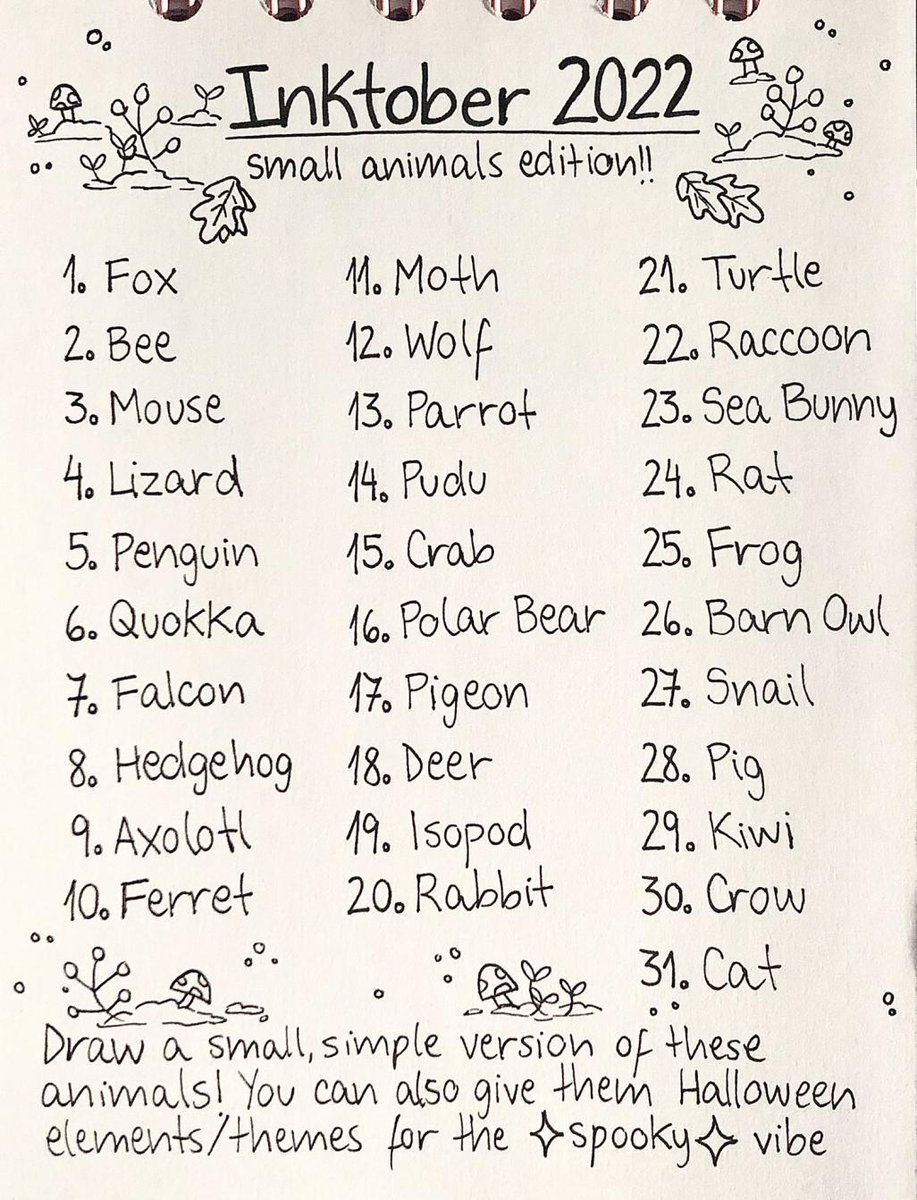 Inktober 2022
small animals edition!!
1. Fox
2. Bee
3. Mouse
4. Lizard
5. Penguin
6. Quokka
7. Falcon
8. Hedgehog
9. Axolotl
10. Ferret
11. Moth
12. Wolf
13. Parrot
14. Pudu
15. Crab
16. Polar Bear
17. Pigeon
18. Deer
19. Isopod
20. Rabbit
21. Turtle
22. Raccoon
23. Sea Bunny
24. Rat
25. Frog
26. Barn Owl
27. Snail
28. Pig
29. Kiwi
30. Crow
31. Cat
Draw a small, simple version of these
animals! You can also give them Halloween
elements/themes for the ✧spooky✧ vibe